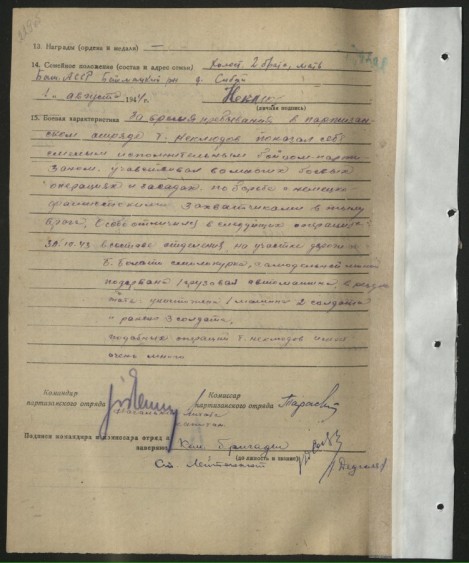 13. Награды (ордена и медали) —
14. Семейное положение (состав и адрес семьи) Холост, 2 брата, мать
Баш. АССР Баймакский
1. августа 1944 г.
(личная подпись)
15. Боевая характеристика За время пребывания в партизан-
ском отряде т. Неклюдов показал себя
смелым исполнительным бойцом-парти-
заном, участвовал во многих боевых
операциях и засадах по борьбе с немецко-
фашистскими захватчиками в тылу
врага. Особо отличился в следующих операциях
30.10.43 в составе отделения, на участке дороги
самодельной миной
подорвана 1 грузовая автомашина, в резуль-
тате уничтожена 1 машина 2 солдата
и ранено 3 солдата.
подобных операций т. Неклюдов имел
очень много
Командир
партизанского отряда
Комиссар
партизанского отряда
Подписи командира и комиссара отряда
заверяю: Ком. Бригады
(должность и звание)
Ст. Лейтенант